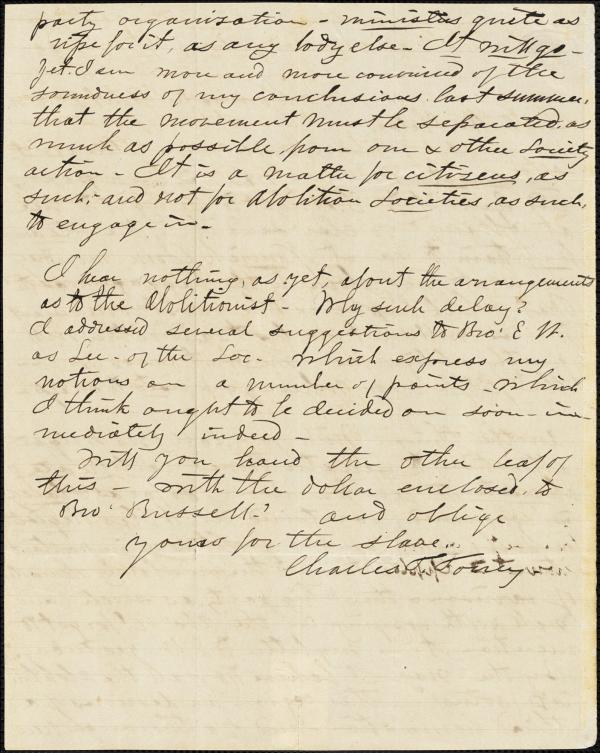 party organization - ministers quite as
ripe for it, as any body else - It will go -
Yet I am more and more convinced of the
soundness of my conclusions last summer,
that the movement must be separated, as
much as possible, from our & other Society
action - It is a matter for citizens, as
such, and not for Abolition Societies, as such,
to engage in -
I hear nothing, as yet, about the arrangements
as to the Abolitionist - Why such delay?
I addressed several suggestions to Bro. E. W.
as Sec. of the Soc. which express my
notions on a number of points - which
I think ought to be decided on soon - im
mediately indeed -
Will you hand the other leaf of
this - with the dollar enclosed, to
Bro. Russell? and oblige
yours for the slave
Charles T. Torrey